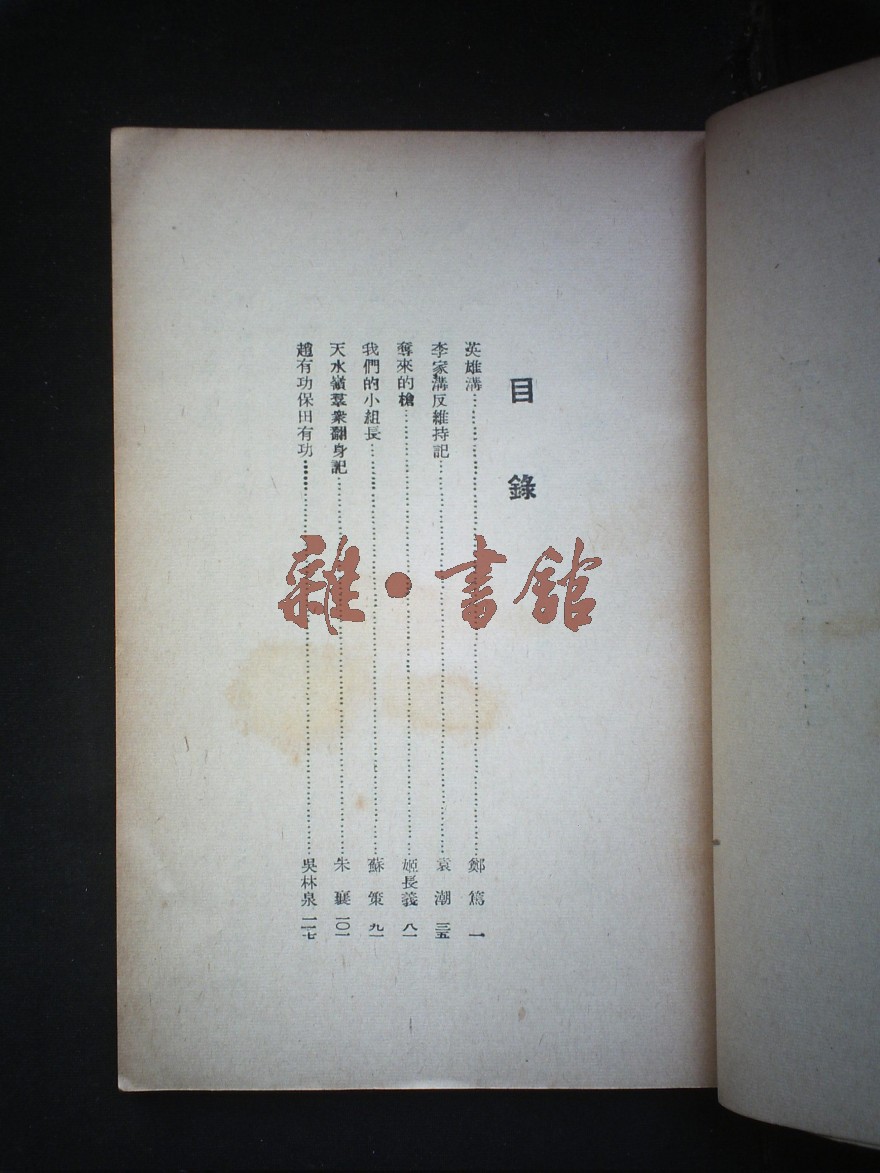 目錄
英雄溝……鄭篤 一
李家溝反維持記……袁潮 三五
奪來的槍……姬長義 八一
我們的小組長……蘇策 九一
天水嶺羣衆翻身記……朱襄 一〇一
趙有功保田有功……吳林泉 一一七
雜·書舘